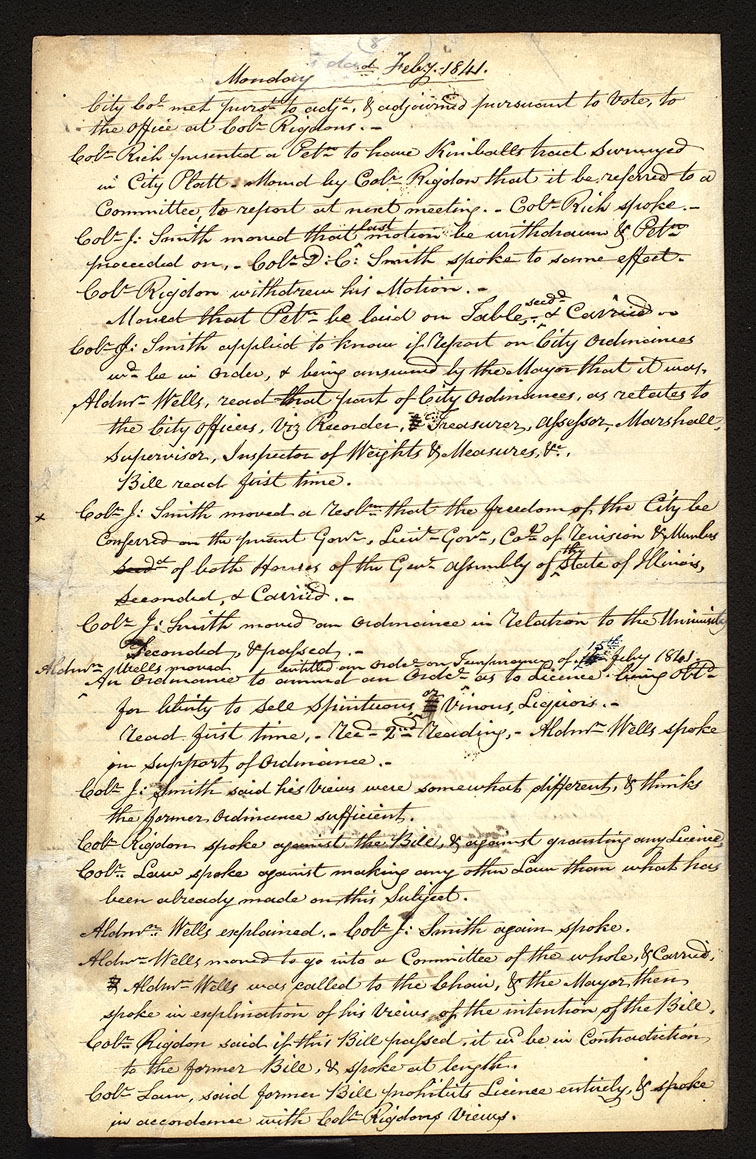 Monday 22nd Feby. 1841.
City Col. met pursnt. to adjt., & adjourned pursuant to Vote, to
the office at Colr. Rigdons. -
Colr. Rich presented a Petn. to have Kimballs tract Surveyed
in City Platt. Moved by Colr. Rigdon that it be referred to a
Committee, to report at next meeting. - Colr. Rich spoke. -
Colr. J: Smith moved that last motion be withdrawn & Petn.
proceeded on, - Colr. D: C: Smith spoke to same effect. -
Colr. Rigdon withdrew his Motion. -
Moved that Petn. be laid on Table, - secdd. & Carried -
Colr. J: Smith applied to know if report on City Ordinances
wd. be in order, & being answered by the Mayor that it was,
Aldmn. Wells, read that part of City Ordinances, as relates to
the City officers, Viz Recorder, Treasurer, assessor, Marshall,
Supervisor, Inspector of Weights & Measures, &c.
Bill read first time.
x Colr. J: Smith moved a resln. that the freedom of the City be
Conferred on the present Govr., Lieut. Govr., Col. of Revision & Members
secdd. of both Houses of the Genl. assembly of the State of Illinois,
Seconded, & Carried. -
Colr. J: Smith moved an ordinance in relation to the University
Seconded, & passed. -
Aldmn. Wells moved entitled an Orde. on Temperance of 15th Feby 1841.
An Ordinance to amend an Orde. as to Licence being Obtd.
for liberty to sell Spirituous, or Vinous, Liquors. -
read first time, - Recd. 2nd Reading, - Aldmn. Wells spoke
in support of Ordinance. -
Colr. J: Smith said his Views were somewhat different, & thinks
the former ordinance sufficient.
Colr. Rigdon spoke against the Bill, & against granting any Licence,
Colr. Law spoke against making any other Law than what has
been already made on this Subject.
Aldmn. Wells explained. - Colr. J: Smith again spoke.
Aldmn. Wells moved to go into a Committee of the whole, & Carried.
Aldmn. Wells was called to the Chair, & the Mayor then
spoke in explination of his Views of the intention of the Bill.
Colr. Rigdon said if this Bill passed, it wd. be in Contradiction
to the former Bill, & spoke at length.
Colr. Law, said former Bill prohibits Licence entirely, & spoke
in accordance with Colr. Rigdons Views.